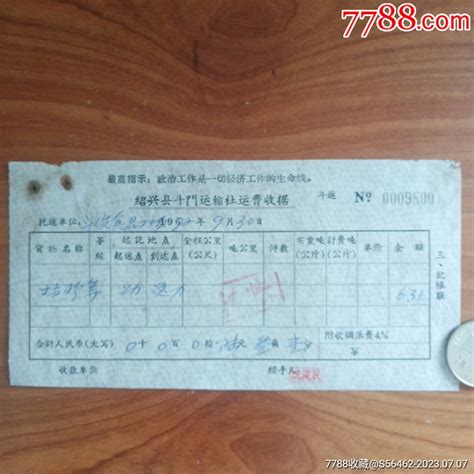 7788.com
最高指示：政治工作是一切经济工作的生命线。
绍兴县斗門运输社运費收据
斗运 № 0009800
托运单位 196 年9月30日
貨物名称 等級 起訖地点 起运点 到达点 全程公里(公尺) 吨公里 件数 实重吨(公斤) 計費吨(公斤) 单价 金額
631
合計人民币(大写) 0千0百0拾 陆元叁角壹分 附收調派費4%
¥
收款单位 經手人
三、記帳联
7788收藏@S56462-2023.07.07